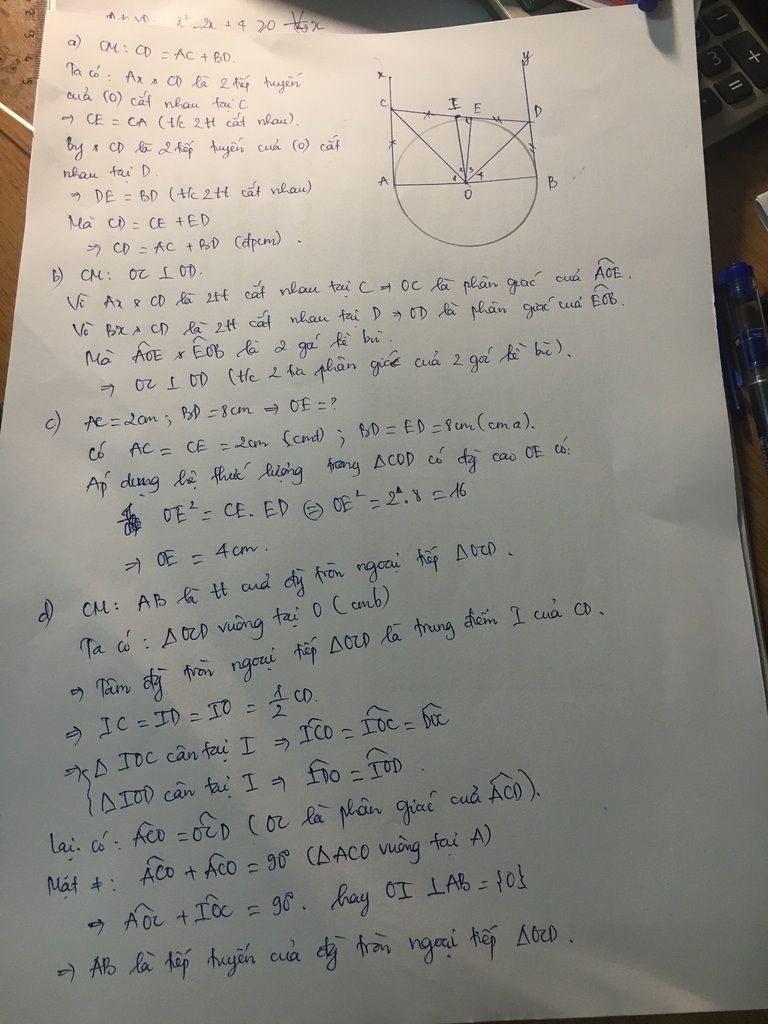 x² - 2x + 4 ≥ 0 ∀ x
a) CM: CD = AC + BD.
Ta có: Ax & CD là 2 tiếp tuyến
của (O) cắt nhau tại C
⇒ CE = CA (t/c 2tt cắt nhau).
By & CD là 2 tiếp tuyến của (O) cắt
nhau tại D.
⇒ DE = BD (t/c 2tt cắt nhau)
Mà CD = CE + ED
⇒ CD = AC + BD (đpcm).
x
y
C
I
E
D
A
O
B
1
2
3
4
b) CM: OC ⊥ OD.
Vì Ax & CD là 2tt cắt nhau tại C ⇒ OC là phân giác của AÔE.
Vì Bx & CD là 2tt cắt nhau tại D ⇒ OD là phân giác của EÔB.
Mà AÔE & EÔB là 2 góc kề bù.
⇒ OC ⊥ OD (t/c 2 tia phân giác của 2 góc kề bù).
c) AC = 2cm; BD = 8cm ⇒ OE = ?
Có AC = CE = 2cm (cmt); BD = ED = 8cm (cma).
Áp dụng hệ thức lượng trong ΔCOD có đg cao OE có:
OE² = CE. ED ⇔ OE² = 2.8 = 16
⇒ OE = 4cm.
d) CM: AB là tt của đg tròn ngoại tiếp ΔOCD.
Ta có: ΔOCD vuông tại O (cmb)
⇒ Tâm đg tròn ngoại tiếp ΔOCD là trung điểm I của CD.
⇒ IC = ID = IO = 1/2 CD.
⇒ { Δ IOC cân tại I ⇒ IĈO = IÔC =
Δ IOD cân tại I ⇒ ID̂O = IÔD.
Lại có: AĈO = OĈD (OC là phân giác của AĈD).
Mặt ≠: AĈO + AĈO = 90° (ΔACO vuông tại A)
⇒ AÔC + IÔC = 90°. hay OI ⊥ AB = {O}
⇒ AB là tiếp tuyến của đg tròn ngoại tiếp ΔOCD.